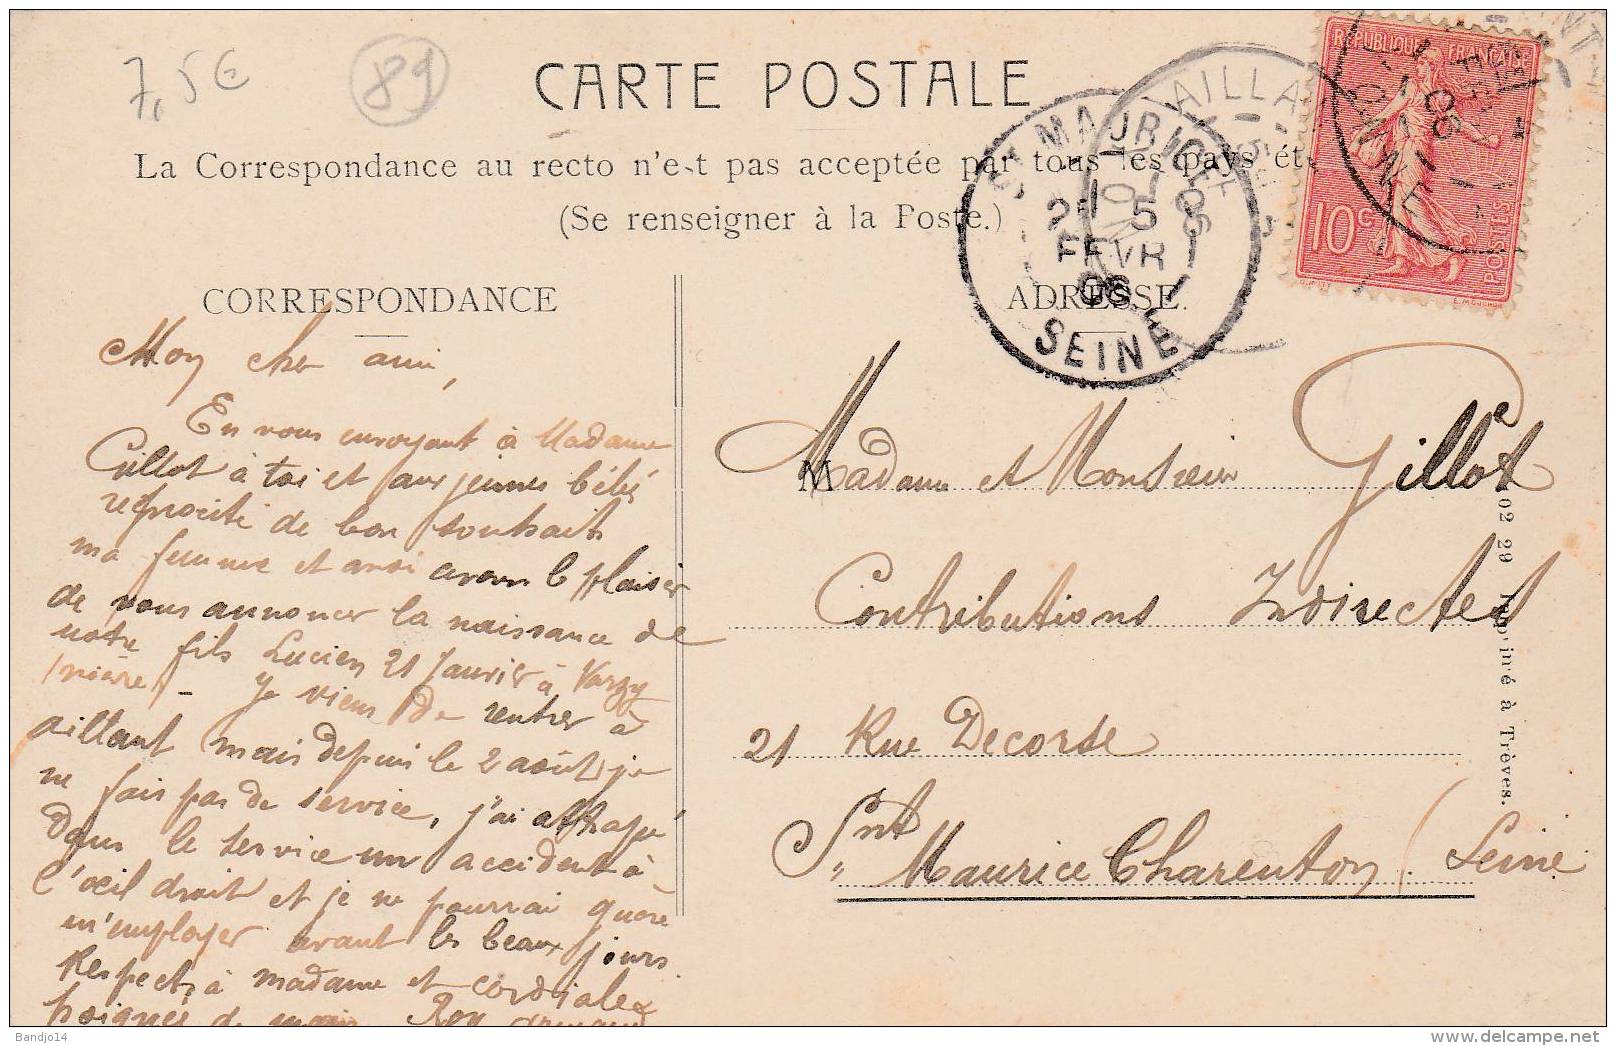 7,5€
89
CARTE POSTALE
La Correspondance au recto n'est pas acceptée par tous les pays ét
(Se renseigner à la Poste.)
REPUBLIQUE FRANÇAISE
10c
POSTES
AILLA
YONNE
ST MAURICE
25
FEVR
06
SEINE
CORRESPONDANCE
ADRESSE.
Mon cher ami,
En vous envoyant à Madame
Gillot à toi et aux jeunes bébés
réciprocité de bon souhaits
ma femme et moi avons le plaisir
de vous annoncer la naissance de
notre fils Lucien 21 Janvier à Varzy
(nièvre) - Je viens de rentrer à
aillant mais depuis le 2 août je
ne fais pas de service, j'ai attrapé
dans le service un accident à
l'œil droit et je ne pourrai guère
m'employer avant les beaux jours.
Respects à madame et cordiales
poignées de main Roy
M
Madame et Monsieur Gillot
Contributions Indirectes
21 Rue Decorse
Snt Maurice Charenton (Seine
02 29 Imprimé à Trèves.
Bandjo14
www.delcampe.net